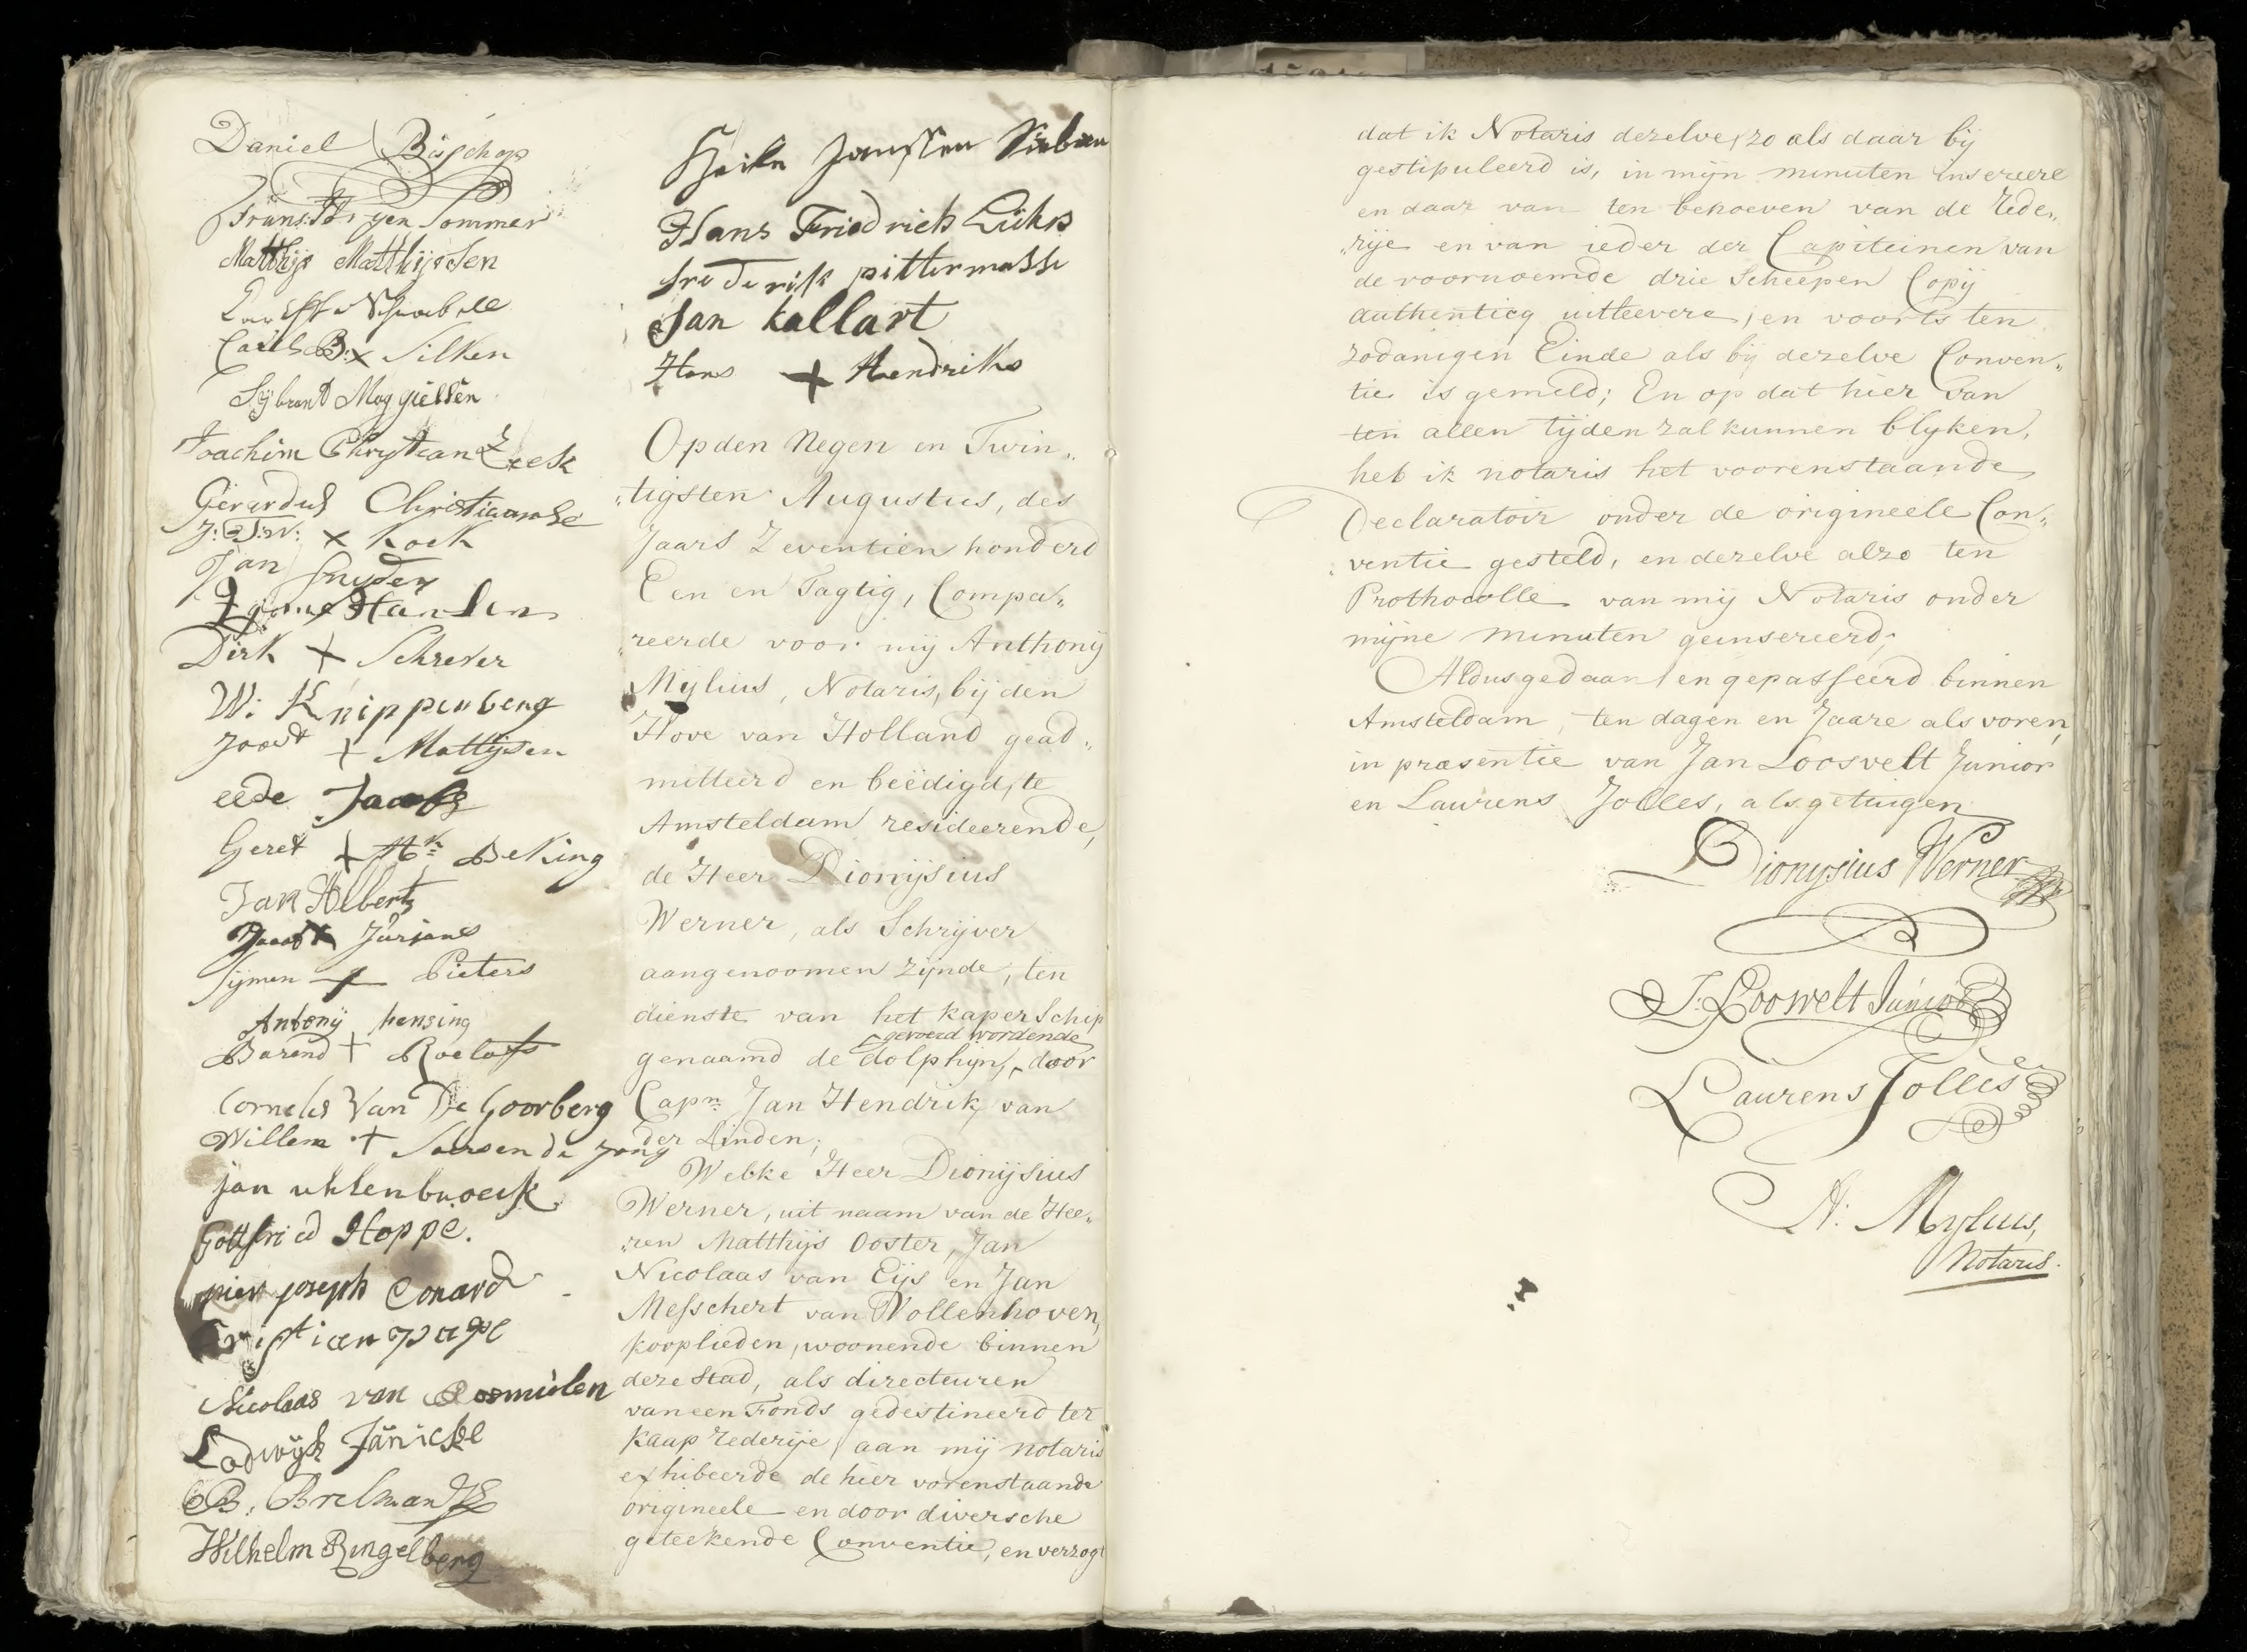 Daniel Bisschop
Sommer
Matthijs Matthijssen
Carl B: x Silken
Sijbrant Maggielsen
Joachim Christian Zeek
Gerardus Christiaanse
J: C: W: x Koch
Jan Snyder
Hansen
Dirk + Schrever
W: Knippenberg
Joost + Mattijsen
eede Jacobs
Geret + Hk: Beking
Jan Albertz
Jacob x Jurjans
Sijmen + Pieters
Antonij hensing
Barend + Roelofs
Cornelis Van De Goorberg
Willem + Saersen de Jong
jan uhlenbroeck
Gottfried Hoppe.
pier joseph Conard
Cristian page
Nicolaas van Rosmiolen
Lodwijk Jänicke
B. Brelman
Wilhelm Ringelberg
Heike Janssen Sieben
Hans Friedrich Lühr
frederik pittermasse
Jan kallart
Hans + Hendriks
Op den Negen en Twin„
„tigsten Augustus, des
Jaars Zeventien honderd
Een en Tagtig, Compa„
„reerde voor mij Anthonij
Mylius, Notaris, bij den
Hove van Holland gead„
mitteerd en beëdigd, te
Amsteldam resideerende,
de Heer Dionijsius
Werner, als Schrijver
aangenoomen zijnde, ten
dienste van het kaperschip
gevoerd wordende
genaamd de dolphijn, door
Capn: Jan Hendrik van
der Linden;
Welke Heer Dionijsius
Werner, uit naam van de Hee„
„ren Matthijs Ooster, Jan
Nicolaas van Eijs en Jan
Messchert van Vollenhoven,
kooplieden, woonende binnen
deze Stad, als directeuren
van een Fonds gedestineerd ter
Kaap Rederije, aan mij notaris
exhibeerde de hier vorenstaande
origineele en door diversche
geteekende Conventie, en verzogt
dat ik Notaris dezelve, zo als daar bij
gestipuleerd is, in mijn minuten insereere
en daar van ten behoeven van de Rede„
„rije en van ieder der Capiteinen van
de voornoemde drie Scheepen Copij
authenticq uitleevere, en voorts ten
zodanigen Einde als bij dezelve Conven„
tie is gemeld; En op dat hier van
ten allen tijden zal kunnen blyken,
heb ik notaris het voorenstaande
Declaratoir onder de origineele Con„
„ventie gesteld, en dezelve alzo ten
Prothocolle van mij Notaris onder
mijne minuten geinsereerd;
Aldus gedaan en gepasseerd binnen
Amsteldam, ten dagen en Jaare als voren,
in præsentie van Jan Loosvelt Junior
en Laurens Jolles, als getuigen
Dionysius Werner
J: Loosvelt Junior
Laurens Jolles
A: Mylius,
Notaris.